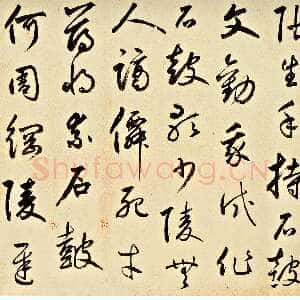 張生手持石鼓
文勸我試作
石鼓歌少陵無
人謫僊死才
薄將奈石鼓
何周綱陵遲
Shufawang.CN